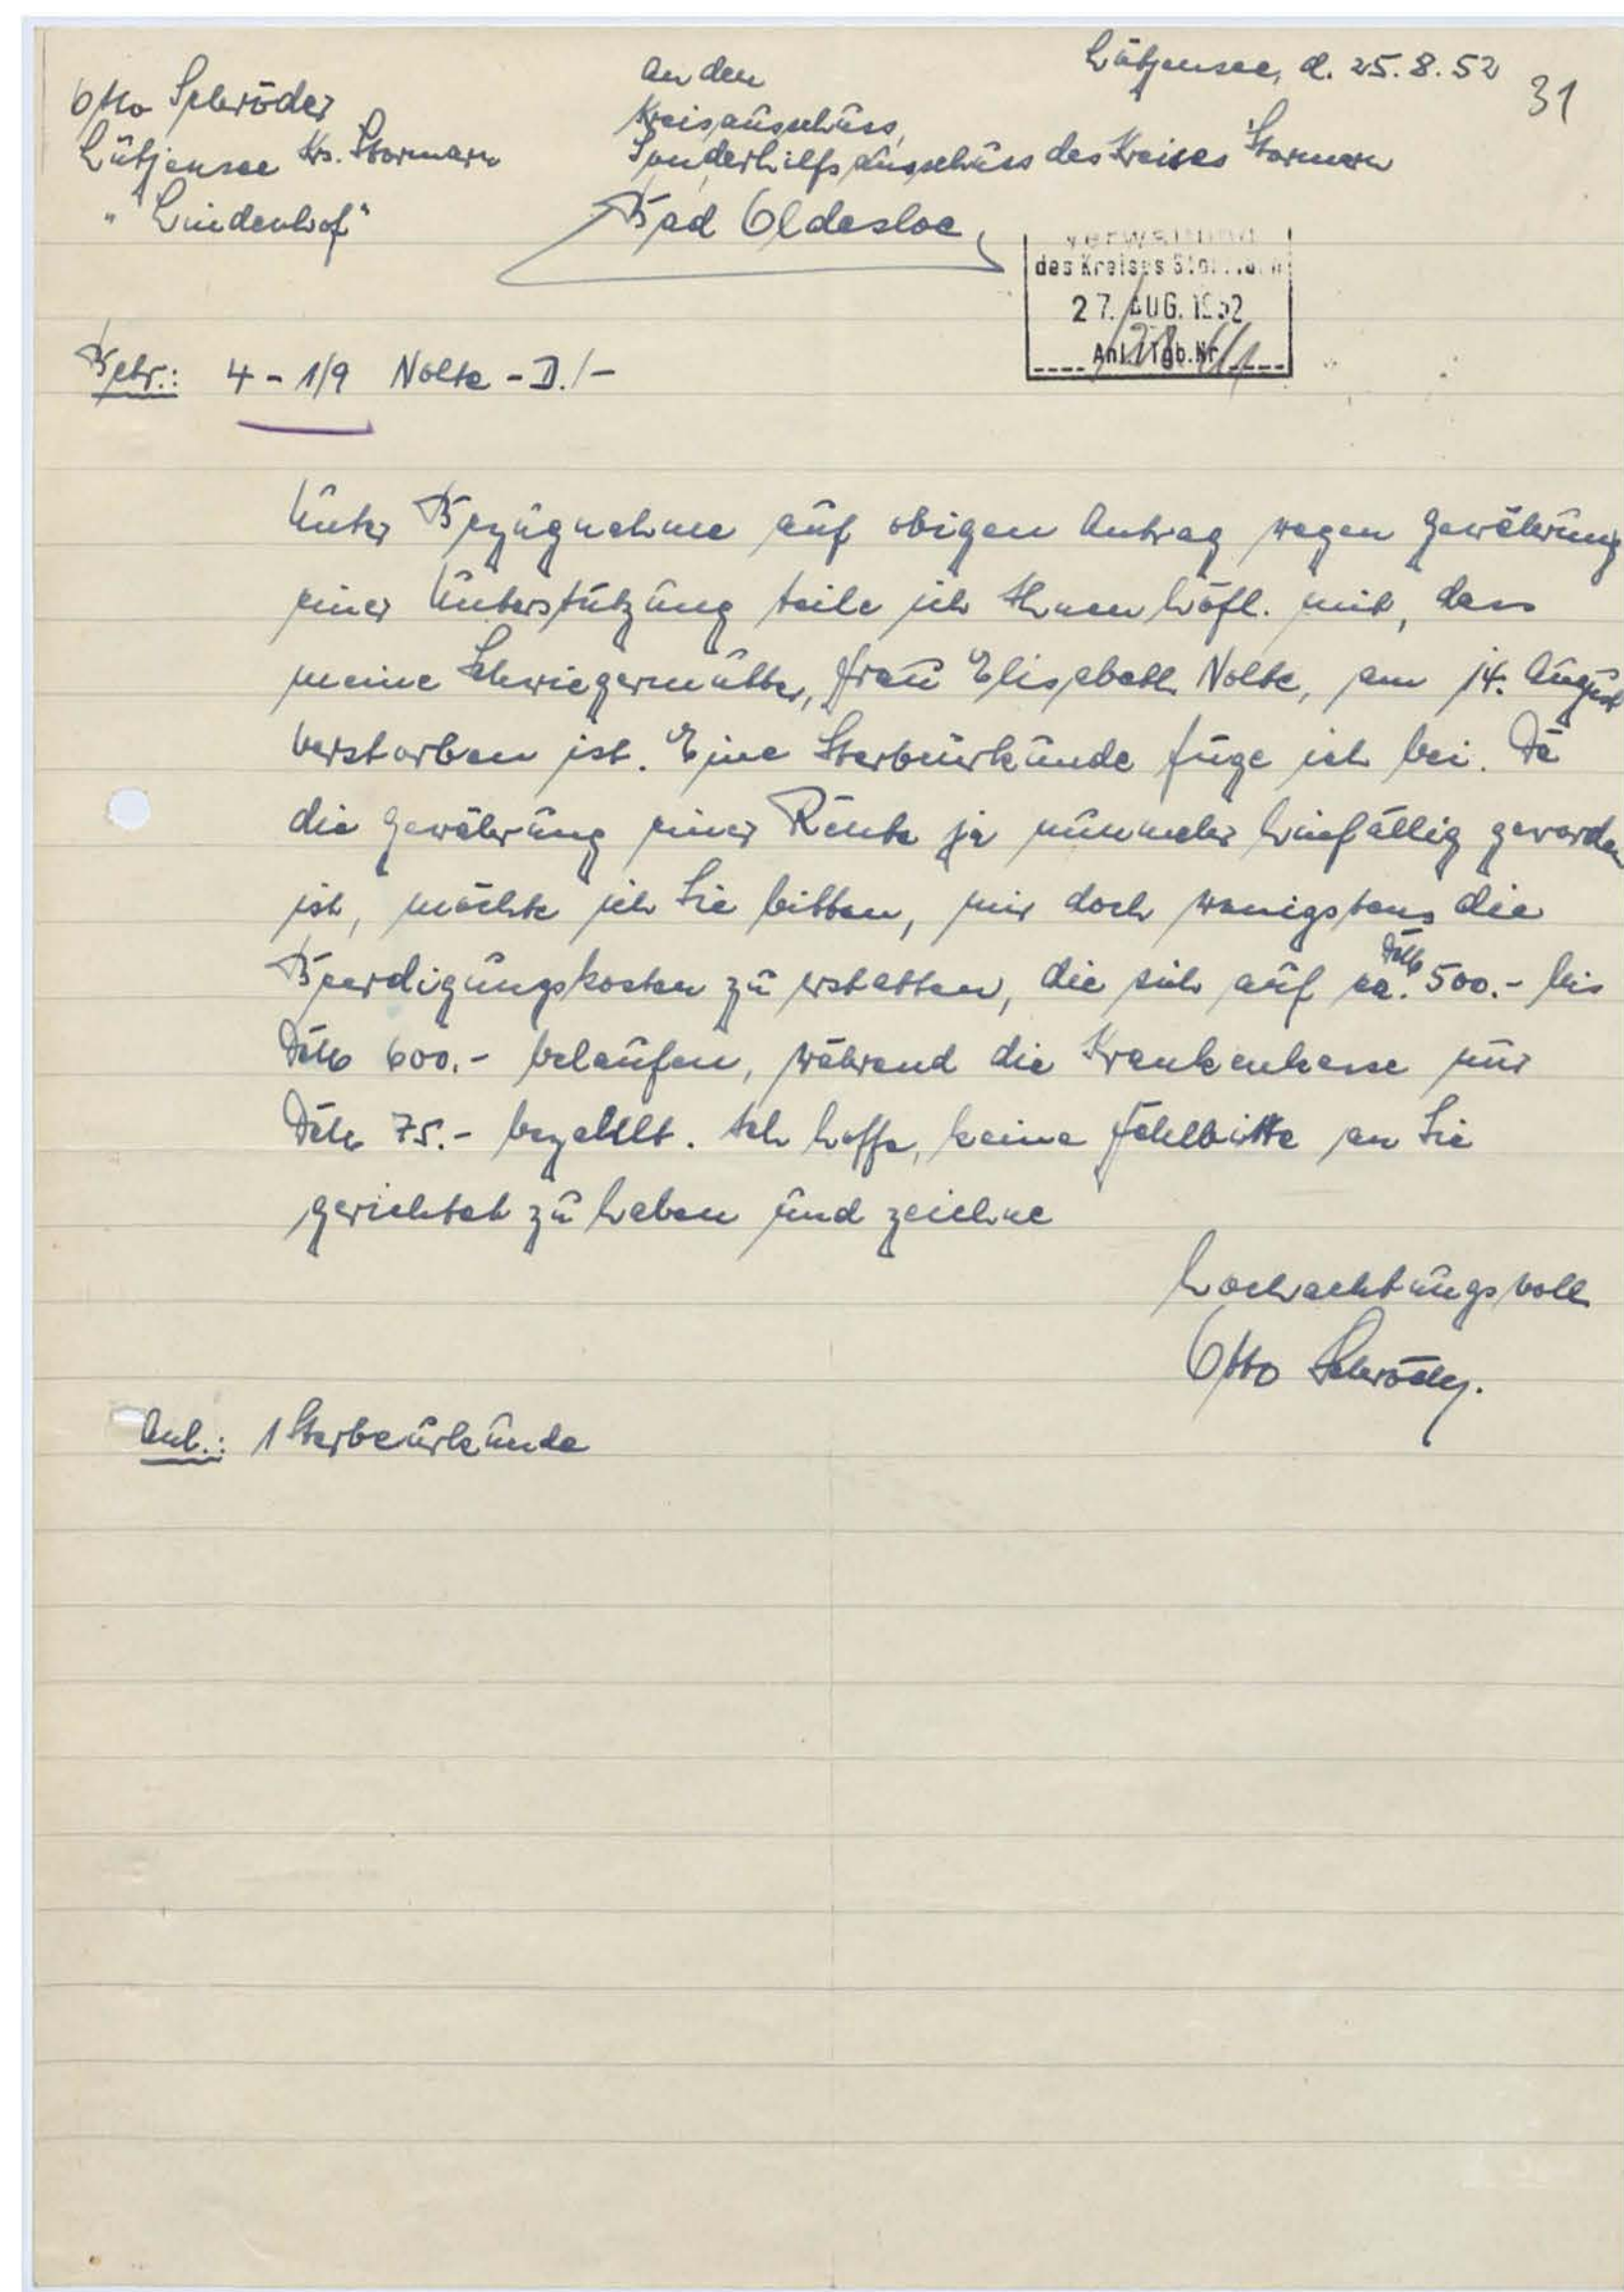 Lütjensee, d. 25.8.52
31
Otto Schröder
Lütjensee Krs. Stormarn
"Lindenhof"
An den
Kreisausschuss,
Sonderhilfsausschuss des Kreises Stormarn
Bad Oldesloe
Verwaltung
des Kreises Stormarn
27. AUG. 1952
Anl./Tgb.Nr.
Betr.: 4 - 1/9 Nolte - D./-
Unter Bezugnahme auf obigen Antrag wegen Gewährung
einer Unterstützung teile ich Ihnen höfl. mit, dass
meine Schwiegermutter, Frau Elisabeth Nolte, am 14. August
verstorben ist. Eine Sterbeurkunde füge ich bei. Da
die Gewährung einer Rente ja nunmehr hinfällig geworden
ist, möchte ich Sie bitten, mir doch wenigstens die
Beerdigungskosten zu erstatten, die sich auf ca. DM 500.- bis
DM 600.- belaufen, während die Krankenkasse nur
DM 75.- bezahlt. Ich hoffe, keine Fehlbitte an Sie
gerichtet zu haben und zeichne
Hochachtungsvoll
Otto Schröder.
Anl.: 1 Sterbeurkunde